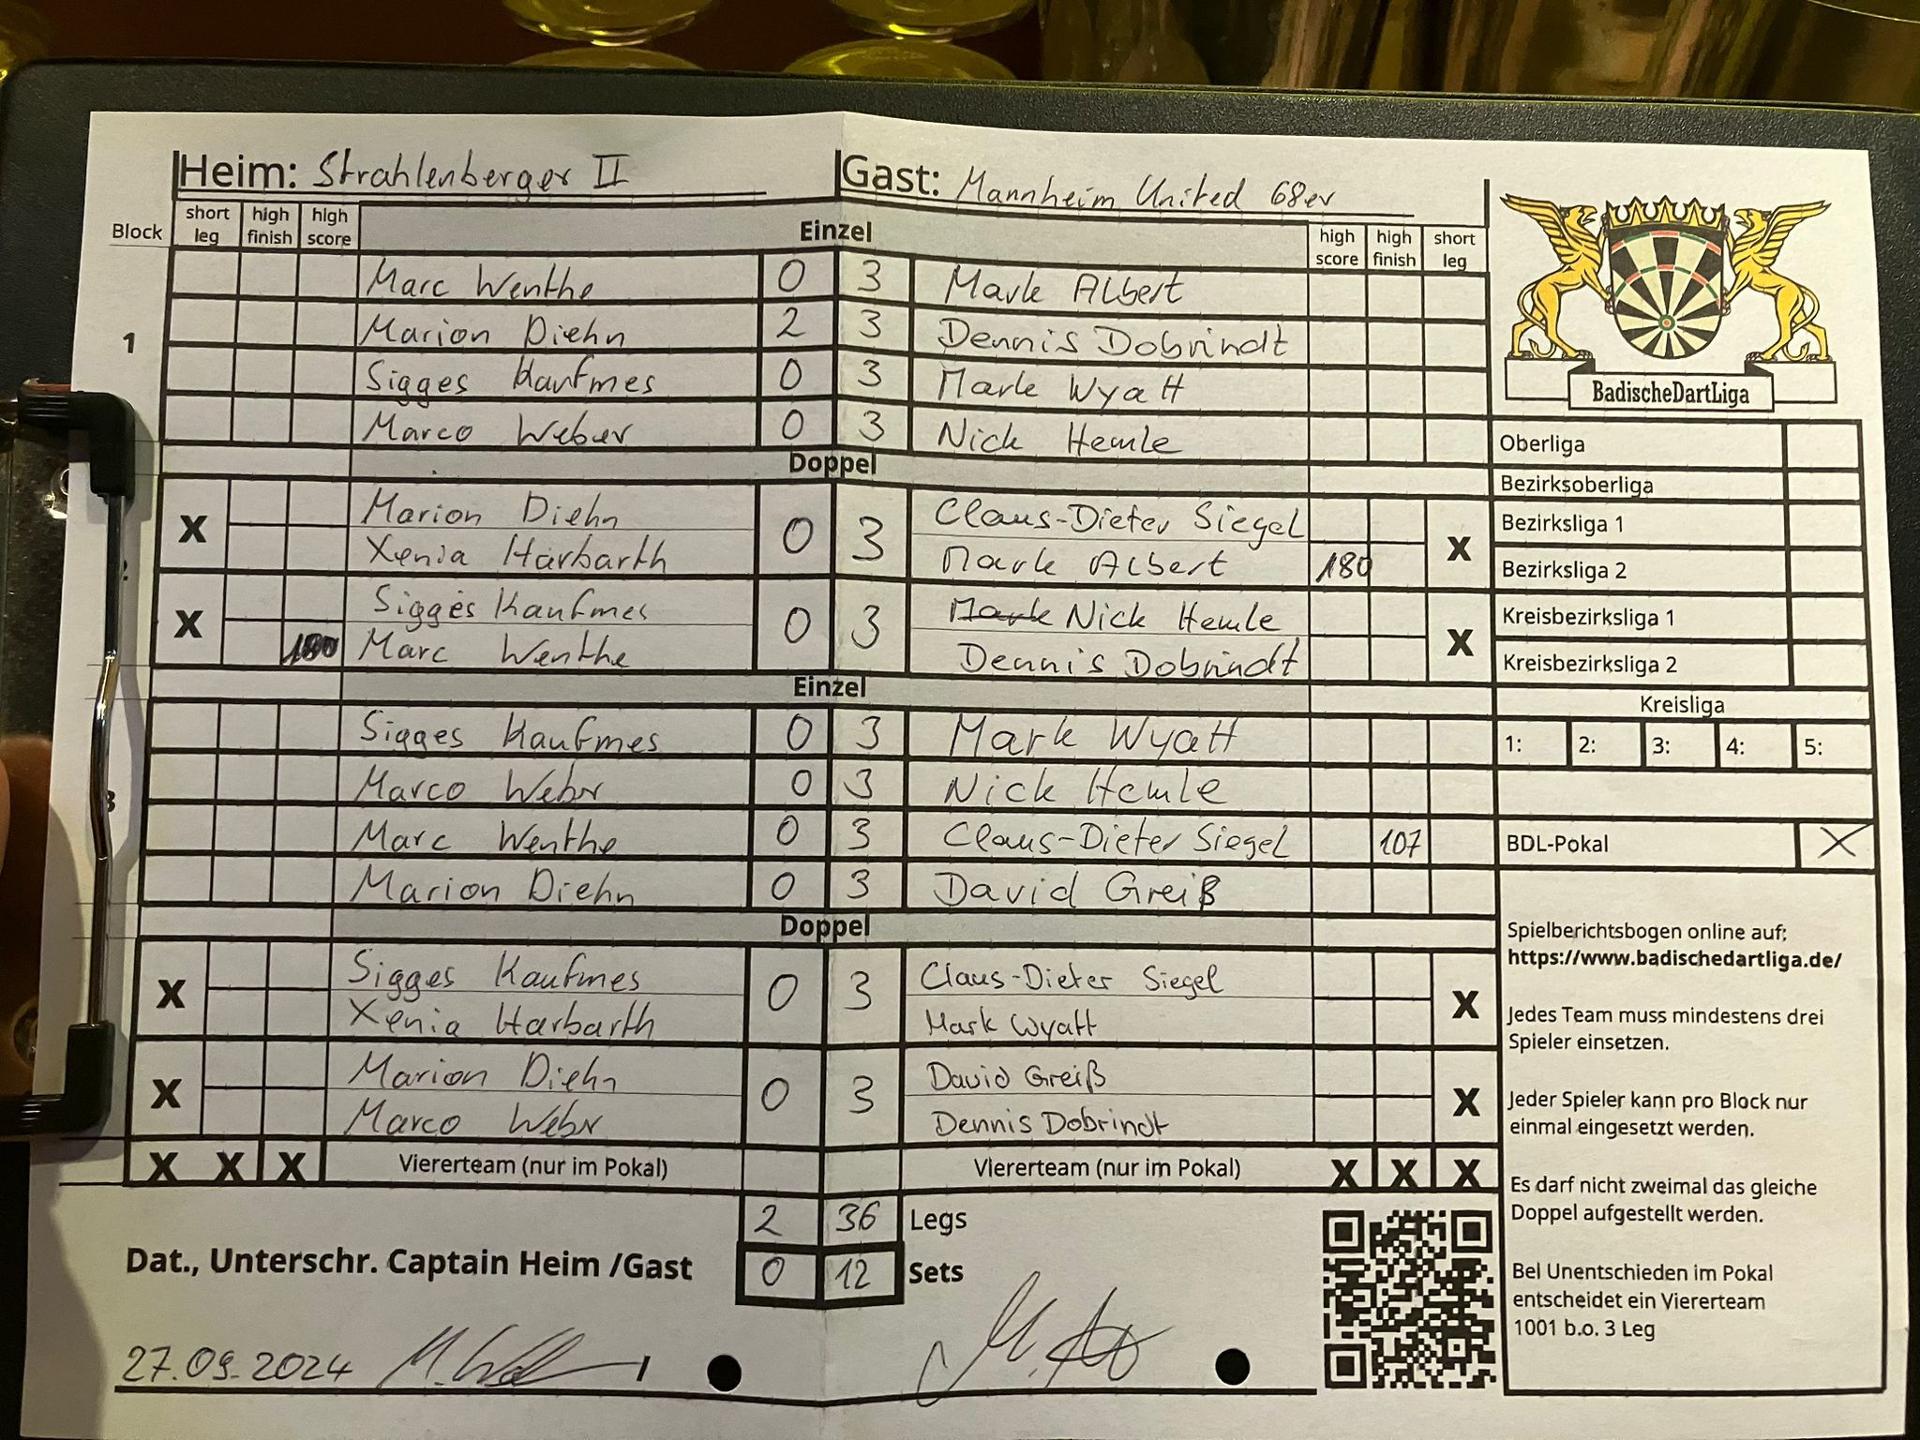 Heim: Strahlenberger II Gast: Mannheim United 68er
Block short leg high finish high score Einzel high score high finish short leg
1
Marc Wenthe 0 3 Mark Albert
Marion Diehn 2 3 Dennis Dobrindt
Sigges Kaufmes 0 3 Mark Wyatt
Marco Weber 0 3 Nick Hemle
Doppel
X Marion Diehn 0 3 Claus-Dieter Siegel X
Xenia Harbarth Mark Albert 180
X Sigges Kaufmes 0 3 Mark Nick Hemle X
Marc Wenthe Dennis Dobrindt
Einzel
3
Sigges Kaufmes 0 3 Mark Wyatt
Marco Webr 0 3 Nick Hemle
Marc Wenthe 0 3 Claus-Dieter Siegel 107
Marion Diehn 0 3 David Greiß
Doppel
X Sigges Kaufmes 0 3 Claus-Dieter Siegel X
Xenia Harbarth Mark Wyatt
X Marion Diehn 0 3 David Greiß X
Marco Webr Dennis Dobrindt
X X X Viererteam (nur im Pokal) Viererteam (nur im Pokal) X X X
2 36 Legs
Dat., Unterschr. Captain Heim /Gast 0 12 Sets
27.09.2024
BadischeDartLiga
Oberliga
Bezirksoberliga
Bezirksliga 1
Bezirksliga 2
Kreisbezirksliga 1
Kreisbezirksliga 2
Kreisliga
1: 2: 3: 4: 5:
BDL-Pokal X
Spielberichtsbogen online auf:
https://www.badischedartliga.de/
Jedes Team muss mindestens drei
Spieler einsetzen.
Jeder Spieler kann pro Block nur
einmal eingesetzt werden.
Es darf nicht zweimal das gleiche
Doppel aufgestellt werden.
Bei Unentschieden im Pokal
entscheidet ein Viererteam
1001 b.o. 3 Leg